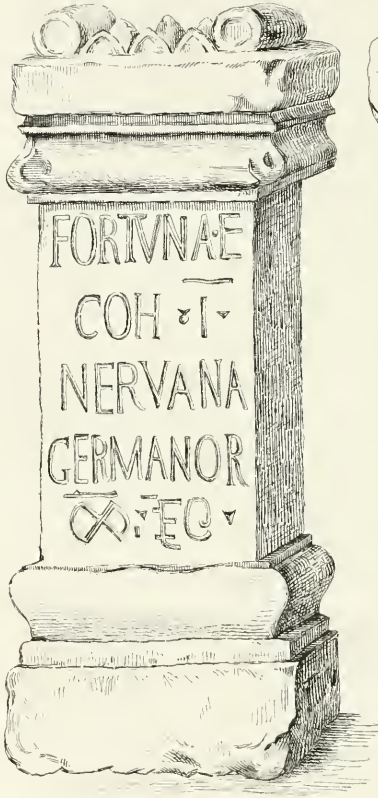 FORTVNA·E
COH · I ·
NERVANA
GERMANOR
∞ · EQ ·